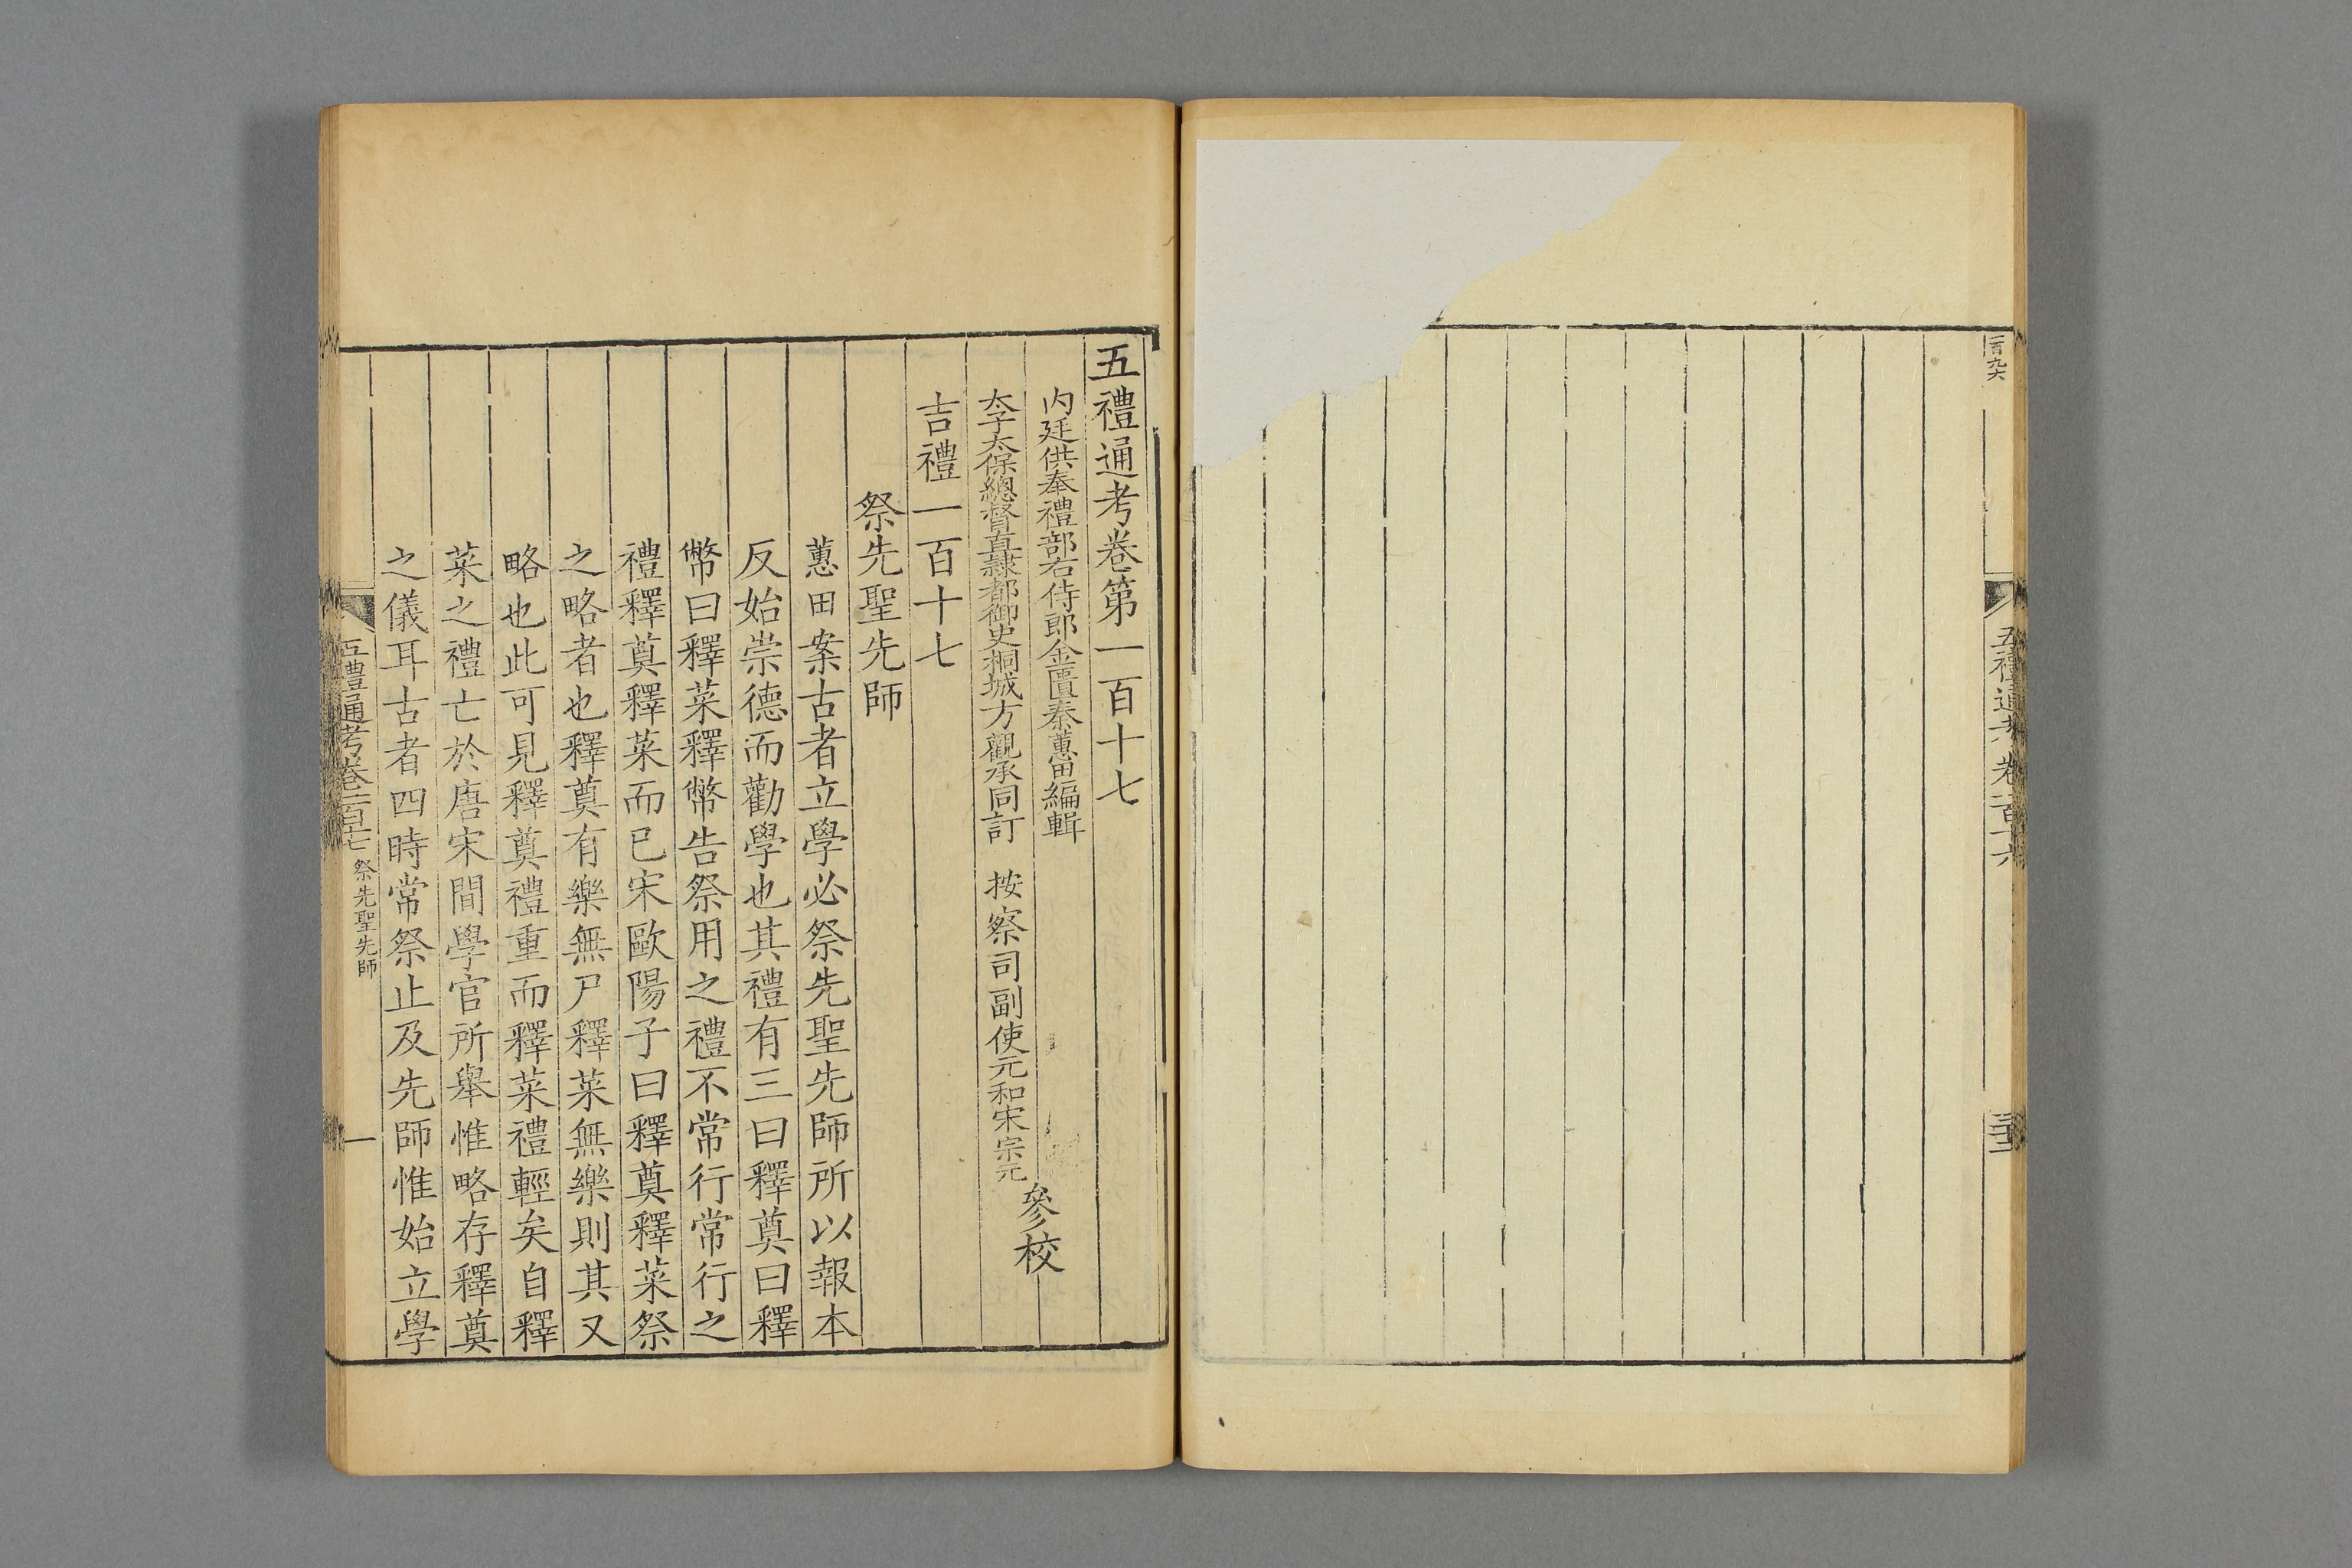 五禮通考卷一百十六
五禮通考卷第一百十七
內廷供奉禮部右侍郎金匱秦蕙田編輯
太子太保總督直隸都御史桐城方觀承同訂 按察司副使元和宋宗元
參校
吉禮一百十七
祭先聖先師
蕙田案古者立學必祭先聖先師所以報本
反始崇德而勸學也其禮有三曰釋奠曰釋
幣曰釋菜釋幣告祭用之禮不常行常行之
禮釋奠釋菜而已宋歐陽子曰釋奠釋菜祭
之略者也釋奠有樂無尸釋菜無樂則其又
略也此可見釋奠禮重而釋菜禮輕矣自釋
菜之禮亡於唐宋間學官所舉惟略存釋奠
之儀耳古者四時常祭止及先師惟始立學
五禮通考卷一百十七 祭先聖先師 一